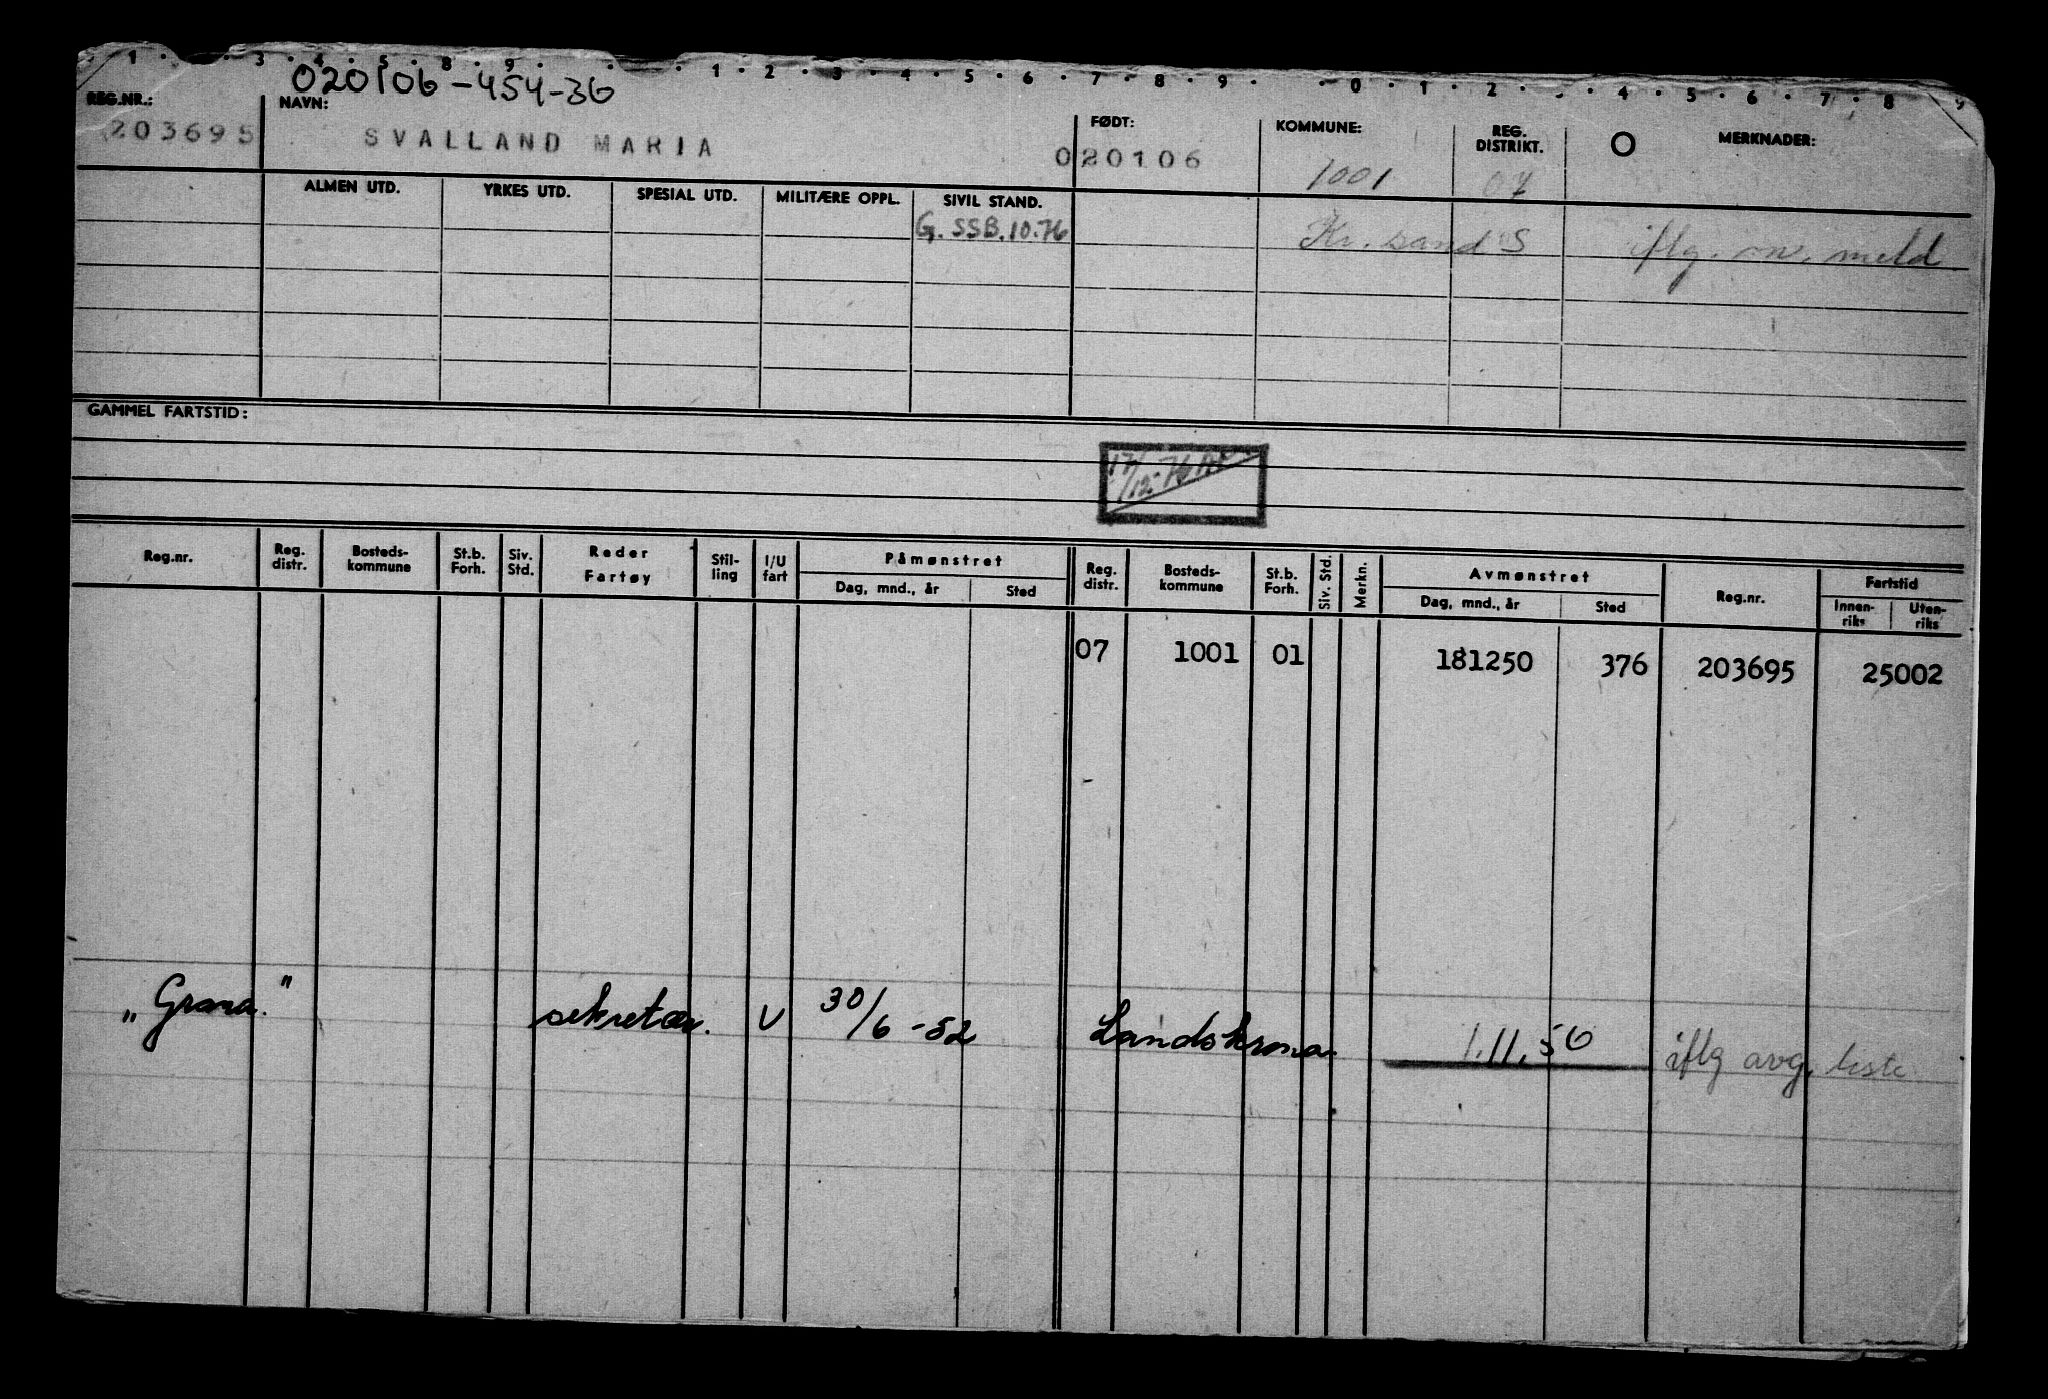 1 . . 3 . 4 . 5 . 8 . 9 . . . 1 . 2 . 3 . 4 . 5 . 6 . 7 . 8 . 9 . . 0 . 1 . 2 . . 4 . 5 . 6 . 7 . 8 9
020106-454-36
REG.NR.: NAVN: FØDT: KOMMUNE: REG. DISTRIKT. O MERKNADER:
203695 SVALLAND MARIA 020106 1001 07
ALMEN UTD. YRKES UTD. SPESIAL UTD. MILITÆRE OPPL. SIVIL STAND.
G. SSB.10.76 Kr. sand S iflg. m. meld
GAMMEL FARTSTID:
17/12-76
Reg.nr. Reg. distr. Bosteds-kommune St.b. Forh. Siv. Std. Reder Fartøy Stil-ling I/U fart Påmønstret Reg. distr. Bosteds-kommune St.b. Forh. Siv. Std. Merkn. Avmønstret Reg.nr. Fartstid
Dag, mnd., år Sted Dag, mnd., år Sted Innen-riks Uten-riks
07 1001 01 181250 376 203695 25002
"Grana." sekretær. U 30/6-52 Landskrona. 1.11.56 iflg avg. liste